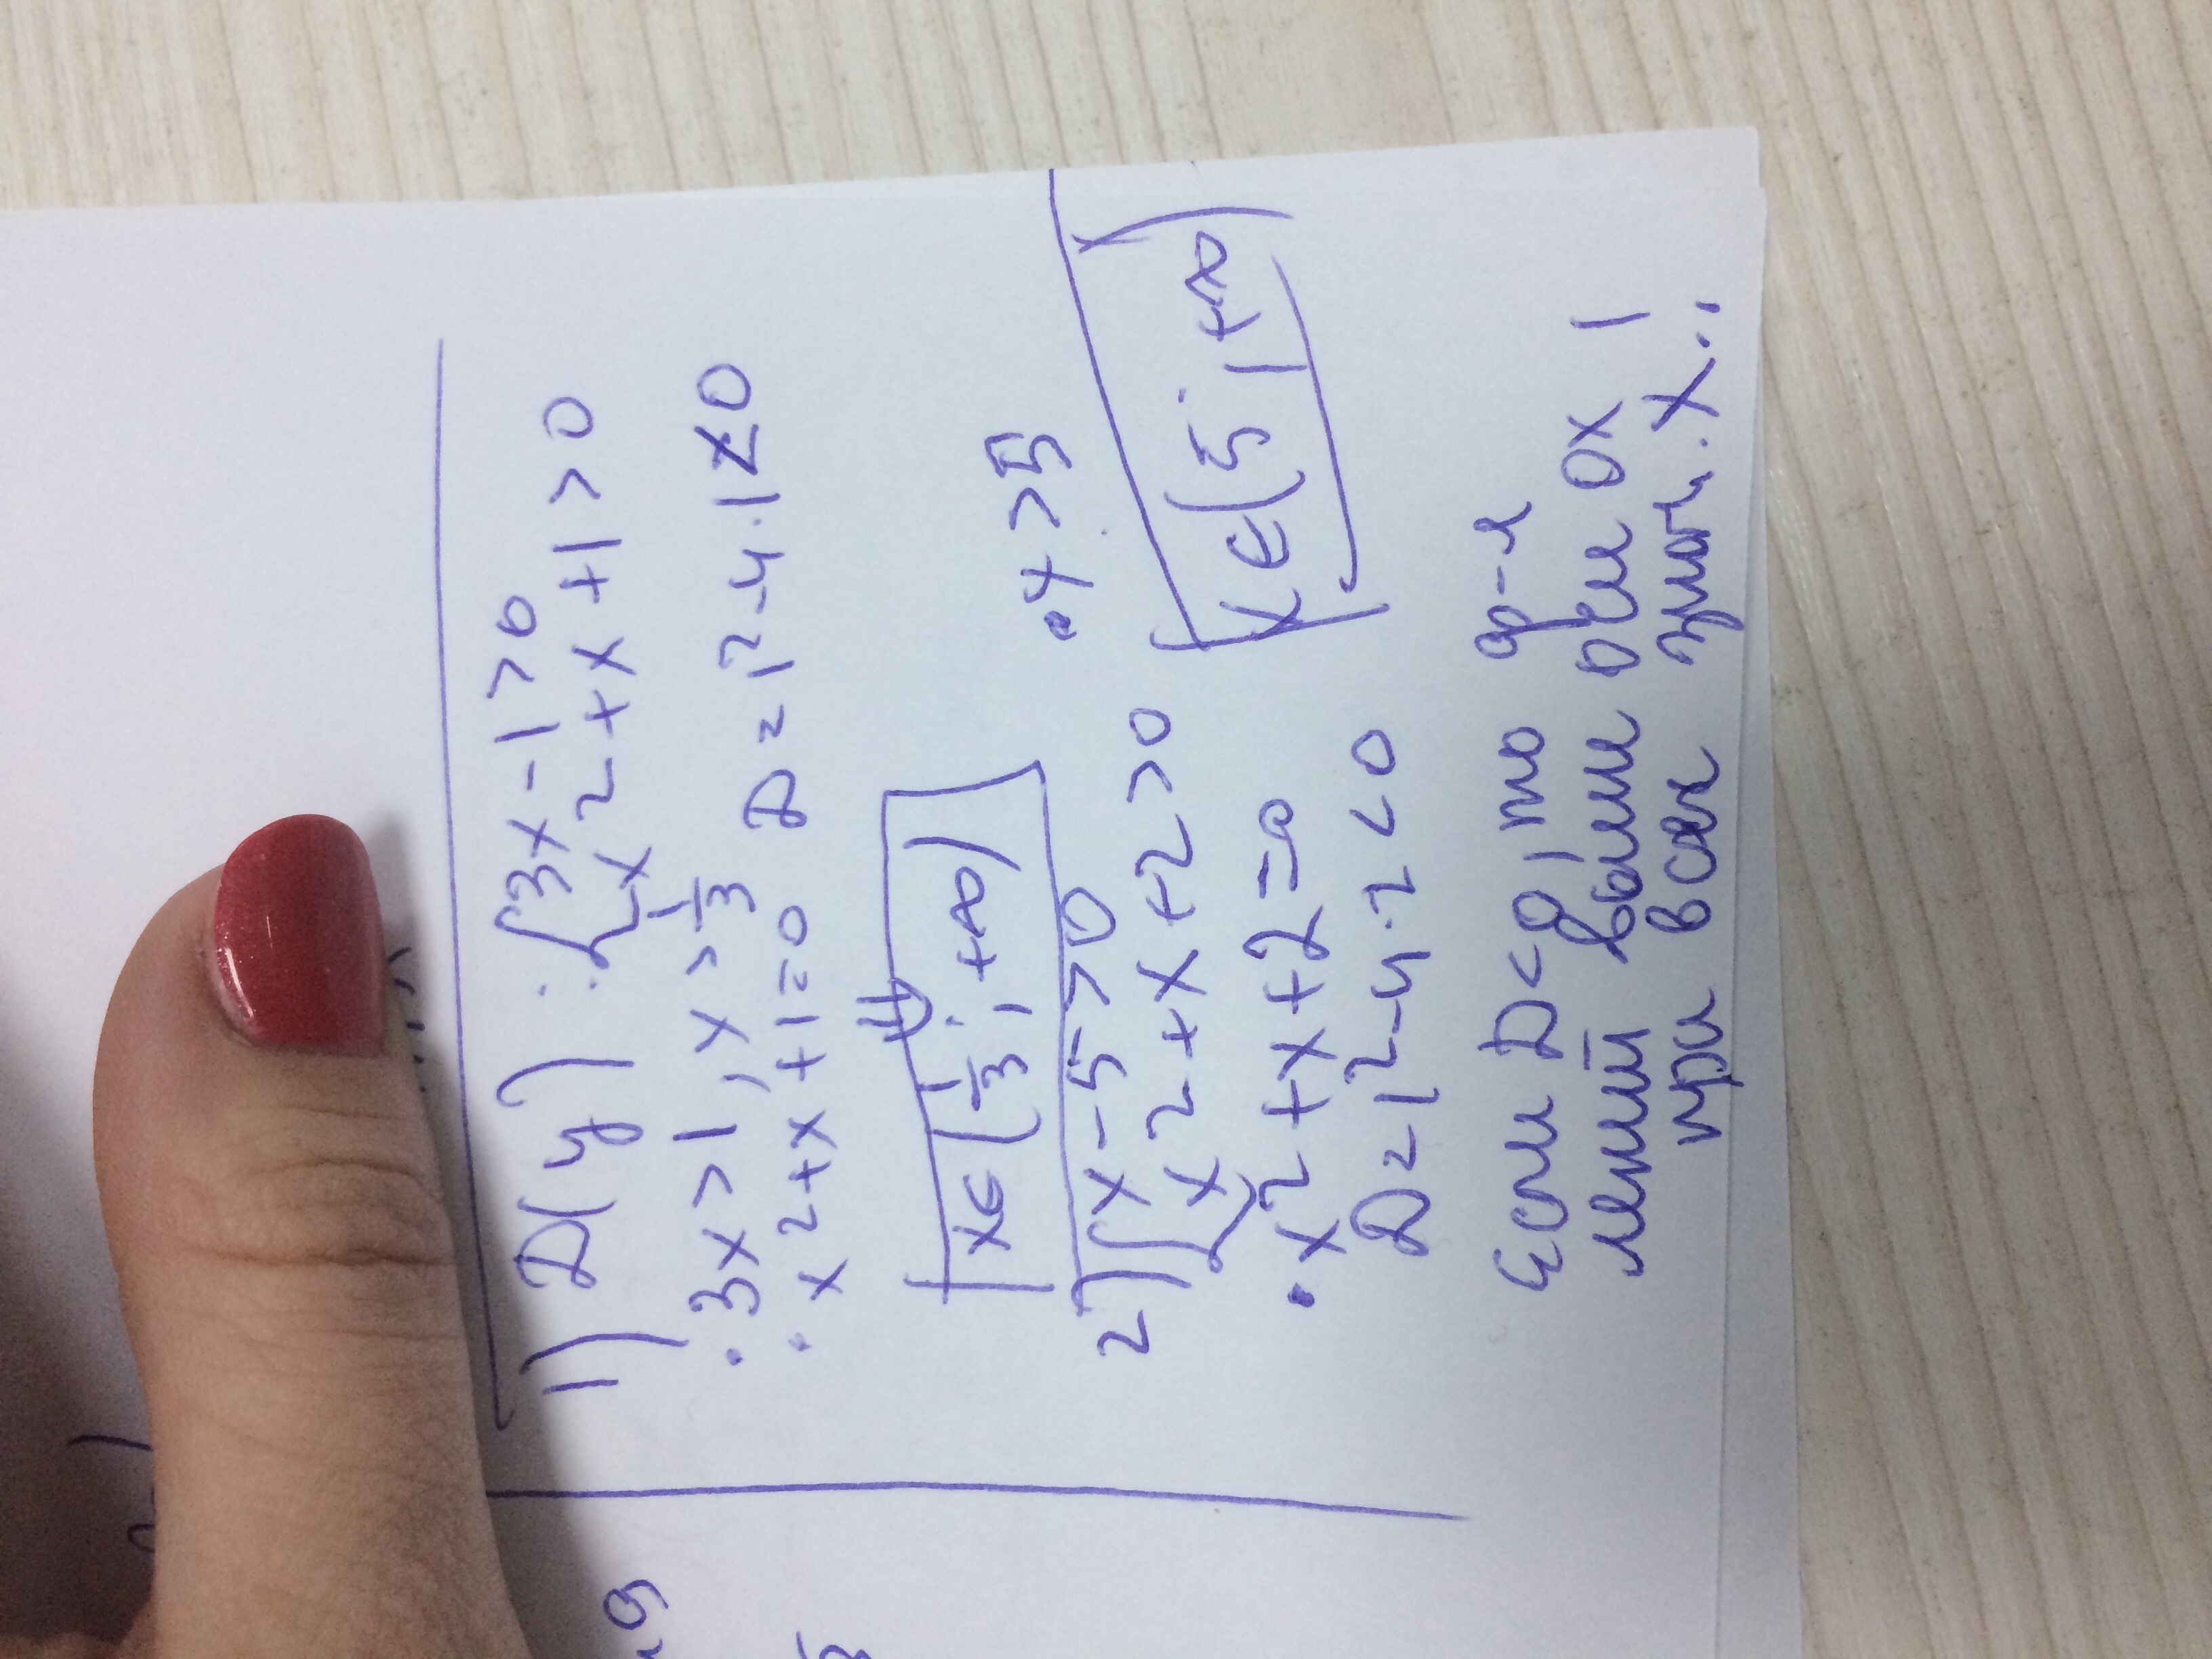 1) D(y): { 3x-1>0
x²+x+1>0
• 3x>1, x>1/3
• x²+x+1=0 D=1²-4·1<0
⇓
x∈(1/3; +∞)
2) { x-5>0
x²+x+2>0
• x>5
• x²+x+2=0
D=1²-4·2<0
x∈(5; +∞)
Если D<0, то ф-я
лежит выше оси OX
при всех знач. x..